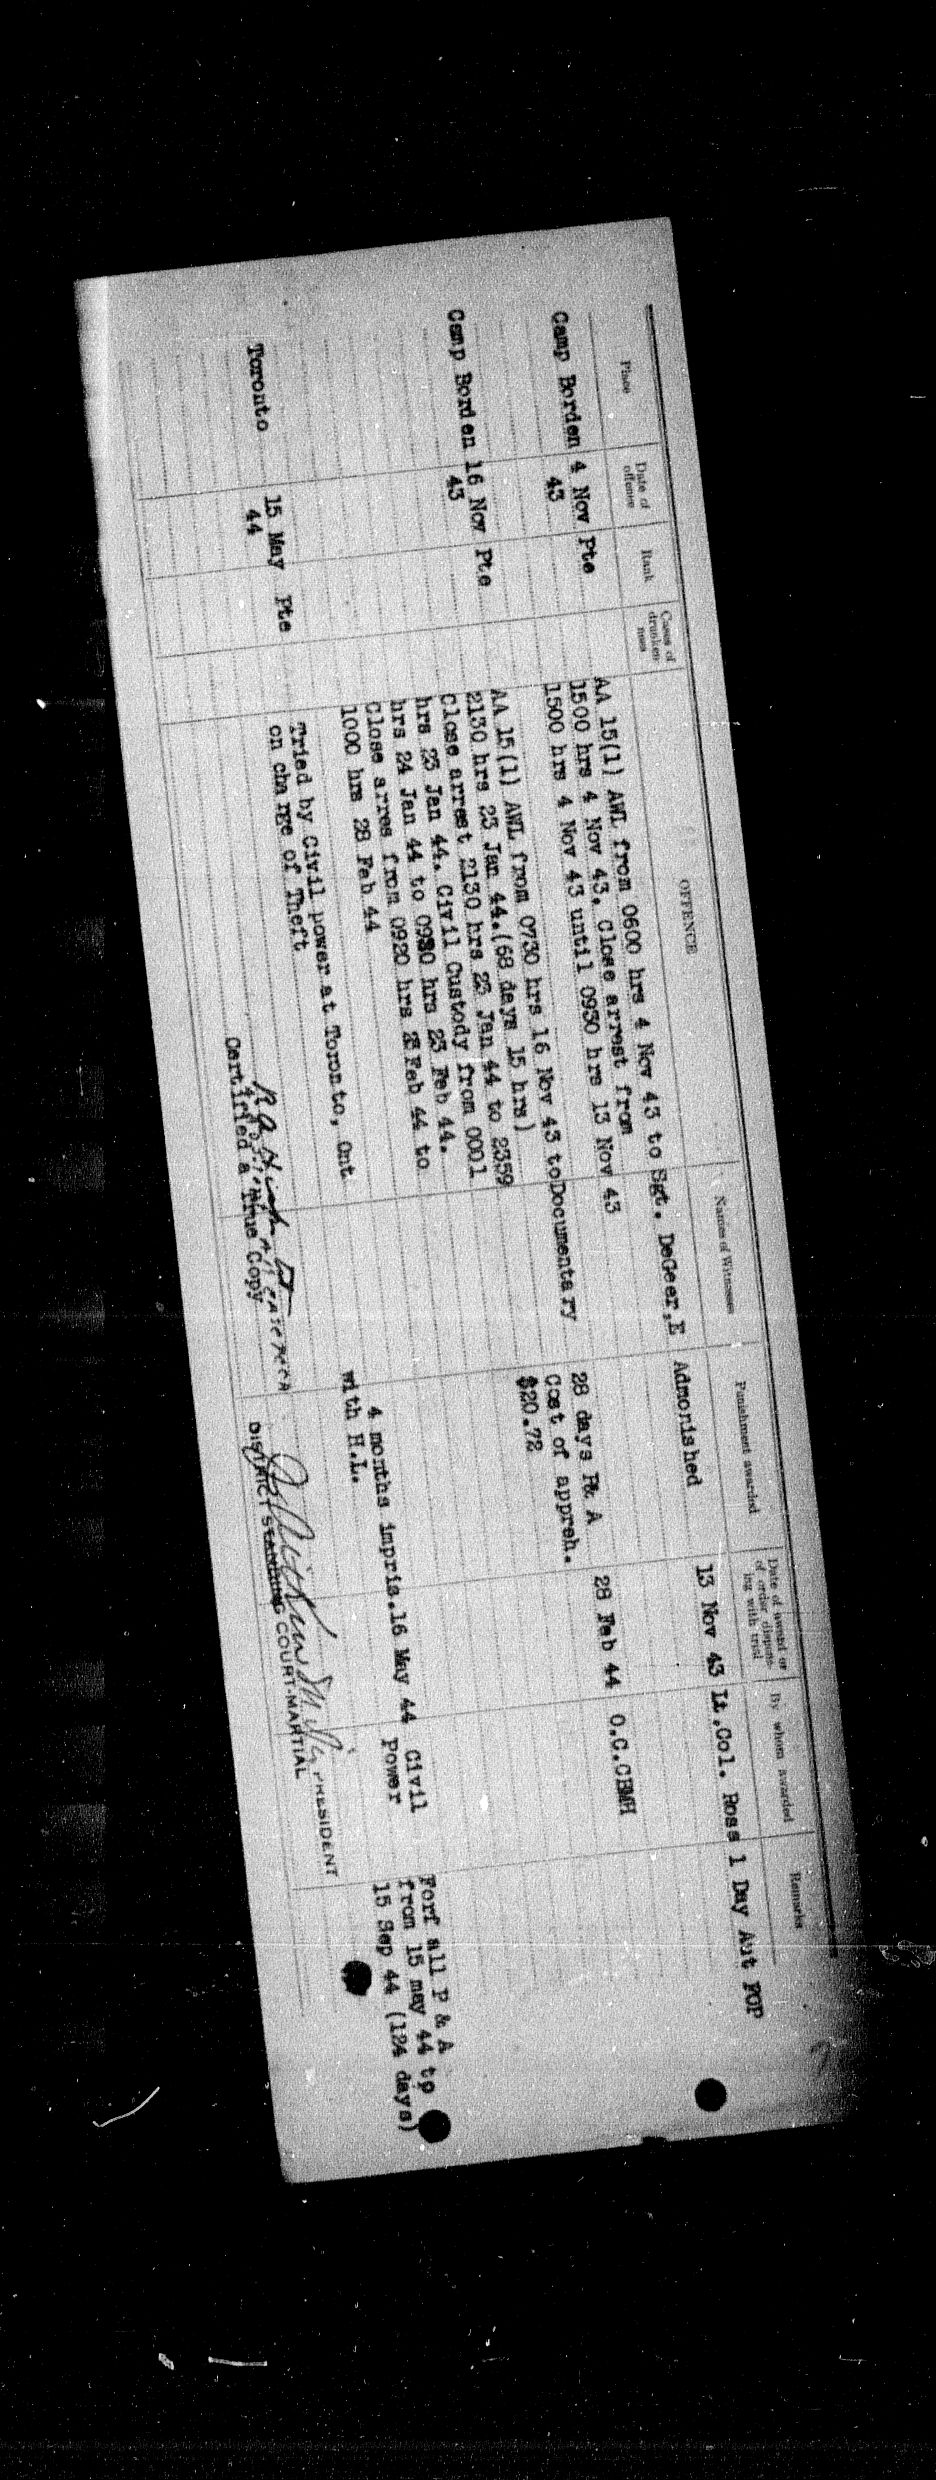 Place
Date of offence
Rank
Cases of drunkenness
OFFENCE
Names of Witnesses
Punishment awarded
Date of award or of order dispensing with trial
By whom awarded
Remarks
Camp Borden 4 Nov 43 Pte
AA 15(1) AWL from 0600 hrs 4 Nov 43 to
1500 hrs 4 Nov 43. Close arrest from
1500 hrs 4 Nov 43 until 0930 hrs 13 Nov 43
Sgt. DeGeer,E
Admonished
13 Nov 43
Lt.Col. Ross
1 Day Aut FOP
Camp Borden 16 Nov 43 Pte
AA 15(1) AWL from 0730 hrs 16 Nov 43 to
2130 hrs 23 Jan 44.(68 days 15 hrs)
Close arrest 2130 hrs 23 Jan 44 to 2359
hrs 23 Jan 44. Civil Custody from 0001
hrs 24 Jan 44 to 0920 hrs 23 Feb 44.
Close arres from 0920 hrs Feb 44 to
1000 hrs 28 Feb 44
Documentary
28 days F& A
Cost of appreh.
$20.72
28 Feb 44
O.C.CBMH
Toronto
15 May 44
Pte
Tried by Civil power at Toronto, Ont
on cha rge of Theft
4 months impris.
with H.L.
16 May 44
Civil
Power
Forf all P & A
from 15 may 44 tp
15 Sep 44 (124 days)
Certified a True Copy
PRESIDENT
DISTRICT STANDING COURT-MARTIAL